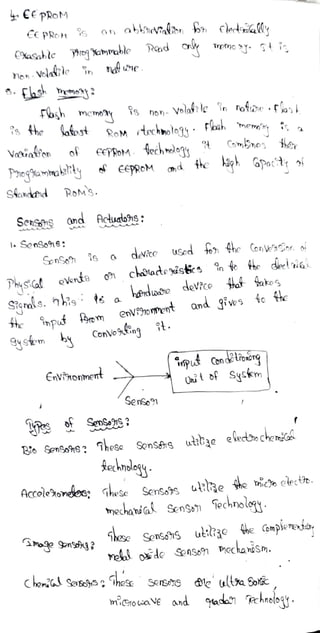 4. EEPROM
EEPROM is an abbreviation for Electrically
Erasable Programmable Read only memory. It is
non-Volatile in nature.
5. Flash memory:
Flash memory is non-volatile in nature. Flash
is the latest ROM technology. Flash memory is a
Variation of EEPROM. technology it combines ther
Programmability of EEPROM and the high Capacity of
Standard ROM's.
Sensors and Actuators:
1. Sensors:
Sensor is a device used for the Conversion of
Physical events or characteristics in to the electrical
Signals. This is a hardware device that takes
the input from environment and gives to the
system by Converting it.
Environment
input conditioning
Unit of System
Sensor
Types of Sensors:
Bio Sensors: These Sensors utilize electrochemical
technology.
Accelerometers: These Sensors utilize the micro electro-
mechanical Sensor Technology.
Image Sensors: These Sensors utilize the Complementary
metal oxide Sensor mechanism.
Chemical Sensors: These Sensors are ultra Sonic,
microwave and radar Technology.